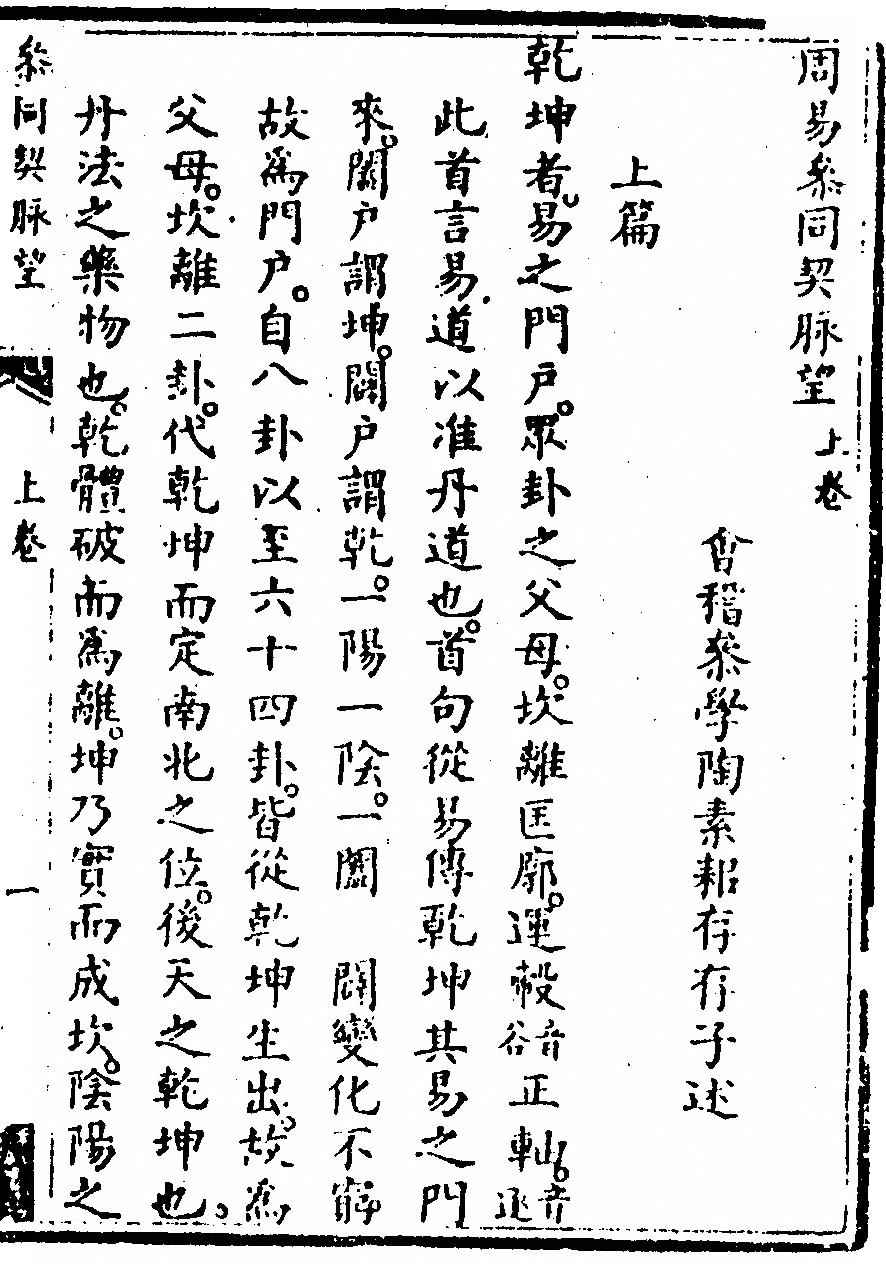 周易叅同契脉望 上卷
會稽叅學陶素耜存存子述
上篇
乾坤者。易之門户。眾卦之父母。坎離匡廓。運轂音谷正軸。音逐
此首言易道以准丹道也。首句從易傳乾坤其易之門
來。闔户謂坤。闢户謂乾。一陽一陰。一闔 闢變化不窮
故爲門户。自八卦以至六十四卦。皆從乾坤生出。故爲
父母。坎離二卦。代乾坤而定南北之位。後天之乾坤也。
丹法之藥物也。乾體破而爲離。坤乃實而成坎。陰陽之
叅同契脉望 上卷 一